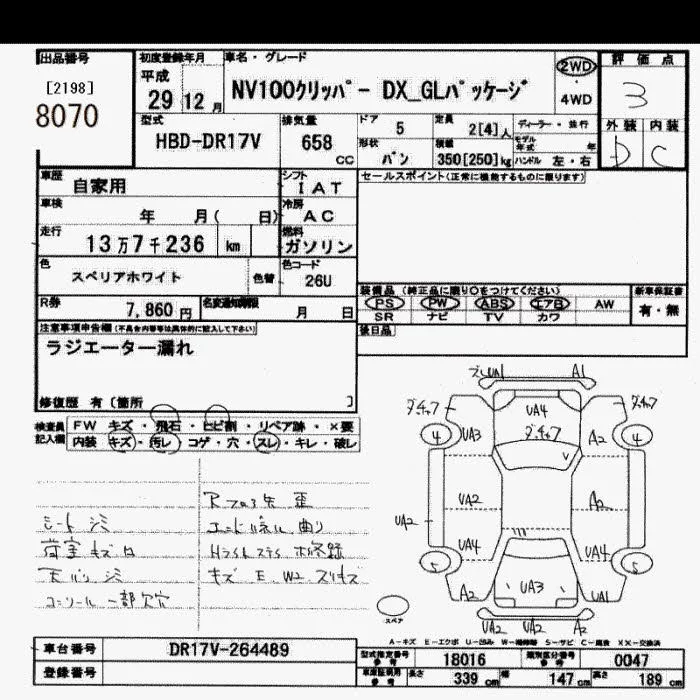 出品番号
[2198]
8070
初度登録年月
平成
29 12 月
車名・グレード
NV100クリッパー DX_GLパッケージ
2WD
4WD
評価点
3
外装 内装
D C
型式
HBD-DR17V
排気量
658 CC
ドア 5
形状 バン
定員 2[4]人
積載 350[250]kg
ディーラー・並行
モデル年式 年
ハンドル 左・右
車歴
自家用
シフト
IAT
車検
年 月( 日)
冷房
AC
走行
13万7千236 km
燃料
ガソリン
色
スペリアホワイト
色替
色コード
26U
R券
7,860円
名変通知期限
月 日
セールスポイント(正常に機能するものに限ります)
装備品 (純正品に限り○をつけてください)
PS PW ABS エアB AW
SR ナビ TV カワ
新車保証書
有・無
後日品
注意事項申告欄(不具合内容等は具体的に記入して下さい)
ラジエーター漏れ
修復歴 有〔箇所 〕
検査員記入欄
FW キズ・飛石・ヒビ割・リペア跡・×要
内装 キズ・汚レ・コゲ・穴・スレ・キレ・破レ
シート シミ
荷室 キズ
天バリ シミ
コンソール 一部欠穴
Rフロア先 歪
エンドパネル 曲り
キズ E W2
UA1 A1
UA4
UA3 A2
4 4
UA2 UA2 A2
UA4 UA4
5 5
A2 UA3 UA1
UA2 UA2 A2
スペア
A-キズ E-エクボ U-凹み W-補修跡 S-サビ C-腐食 XX-交換済
車台番号 DR17V-264489
登録番号
型式指定番号 参考 18016
類別区分番号 参考 0047
車庫証明用 参考 長さ 339 cm 幅 147 cm 高さ 189 cm